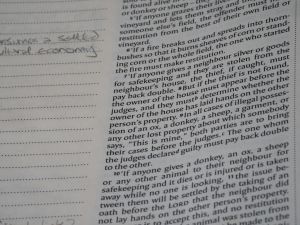 is found alive in
or donkey or sheep — they
"If anyone grazes their
vineyard and lets them stray
restitution from the best of their own field or
vineyard.
"If a fire breaks out and spreads into thorn-
bushes so that it burns shocks of corn or stand-
ing corn or the whole field, the one who started
the fire must make restitution.
"If anyone gives a neighbour silver or goods
for safekeeping and they are stolen from the
neighbour's house, the thief, if caught, must
pay back double. But if the thief is not found,
the owner of the house must appear before the
judges, and they must determine whether the
owner of the house has laid hands on the other
person's property. In all cases of illegal posses-
sion of an ox, a donkey, a sheep, a garment, or
any other lost property about which somebody
says, 'This is mine,' both parties are to bring
their cases before the judges. The one whom
the judges declare guilty must pay back double
to the other.
"If anyone gives a donkey, an ox, a sheep
or any other animal to their neighbour for
safekeeping and it dies or is injured or is taken
away while no one is looking, the issue be-
tween them will be settled by the taking of an
oath before the LORD that the neighbour did
not lay hands on the other person's property.
is to accept this, and no restitution
animal was stolen from
assumes a settled
cultural economy